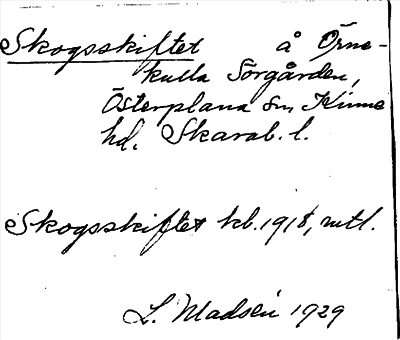 Skogsskiftet å Örne-
kulla Sörgården,
Österplana sn Kinne
hd. Skarab. l.
Skogsskiftet kb. 1918, utl.
L. Madsén 1929